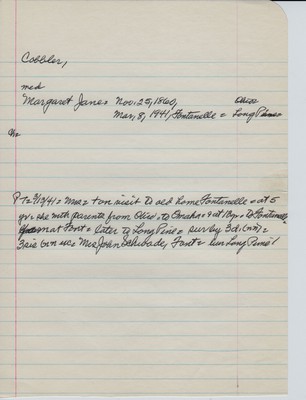 Cobbler,
med
Margaret Jane = Nov. 25, 1860, Ohio =
Mar, 8, 1941, Fontanelle = Long Pine =
P T = 3/13/41 = Mrs = + on visit to old home Fontanelle = at 5
yr = she with parents from Ohio = to Omaha = + at 18yr = to Fontanelle
mar at Font = later to Long Pine = sur by 3d: (nn) =
3 sis (nn exc = Mrs John Schwade, Font = bur Long Pine /